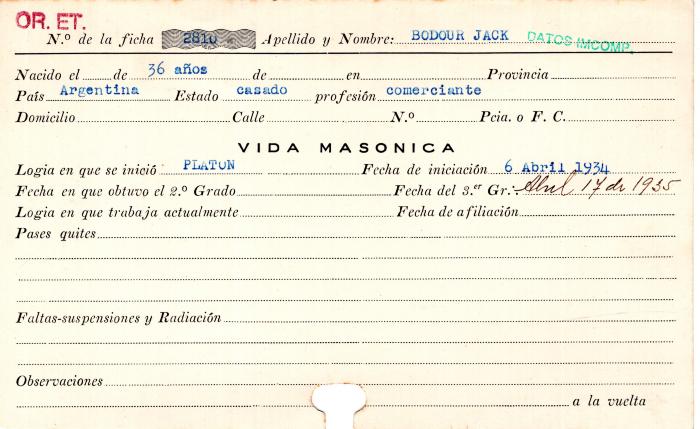 OR. ET.
N.º de la ficha 2810 Apellido y Nombre: BODOUR JACK DATOS IMCOMP.
Nacido el de 36 años de en Provincia
País Argentina Estado casado profesión comerciante
Domicilio Calle N.º Pcia. o F. C.
VIDA MASONICA
Logia en que se inició PLATON Fecha de iniciación 6 Abril 1934
Fecha en que obtuvo el 2.º Grado Fecha del 3.er Gr.: Abril 17 de 1935
Logia en que trabaja actualmente Fecha de afiliación
Pases quites
Faltas-suspensiones y Radiación
Observaciones
a la vuelta